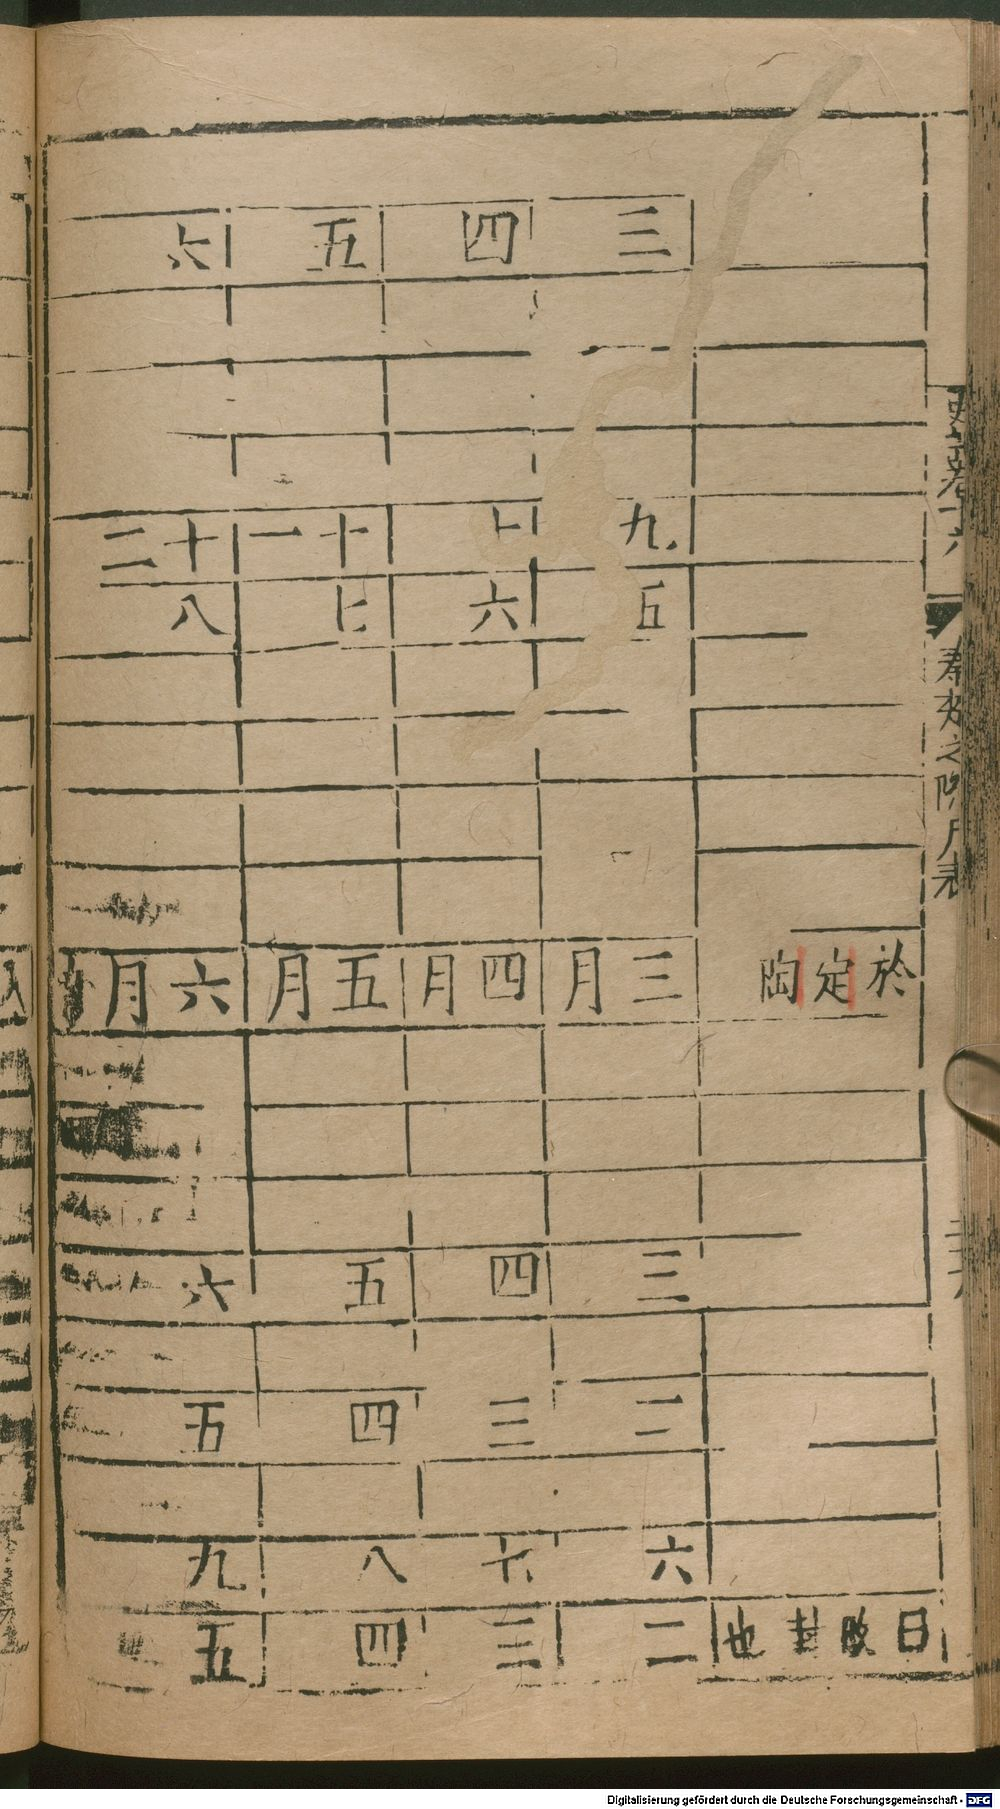 於定陶
日改封也
三
九
五
三月
三
二
六
二
四
十
六
四月
四
三
七
三
五
十一
七
五月
五
四
八
四
六
十二
八
六月
六
五
九
五
秦楚之際月表
Digitalisierung gefördert durch die Deutsche Forschungsgemeinschaft - DFG